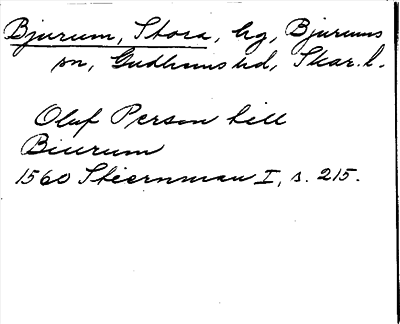 Bjurum, Stora, hg, Bjurums
sn, Gudhems hd, Skar. l.
Oluf Person till
Biurum
1560 Stiernman I, s. 215.